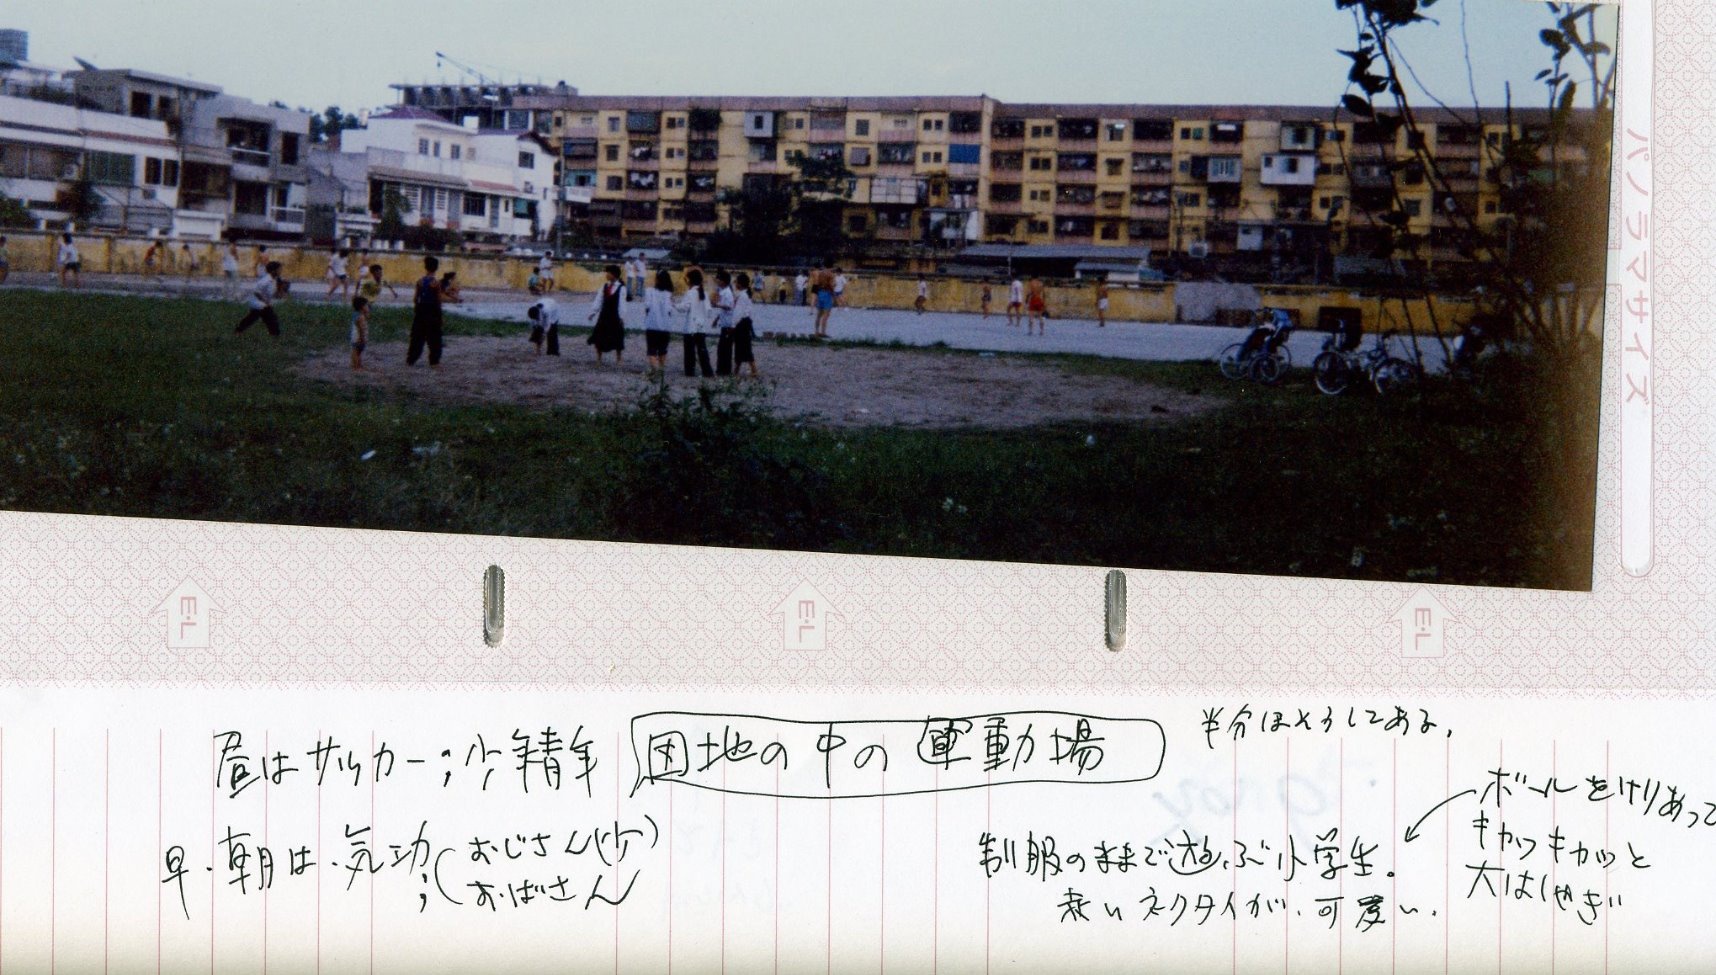 パノラマサイズ
E・L
E・L
E・L
昼はサッカー；少青年
団地の中の運動場
半分はそうしてある。
早・朝は・気功；(おじさん(少)
おばさん
ボールをけりあって
キャッキャッと
大はしゃぎ
制服のままで遊ぶ小学生。
赤いネクタイが、可愛い。